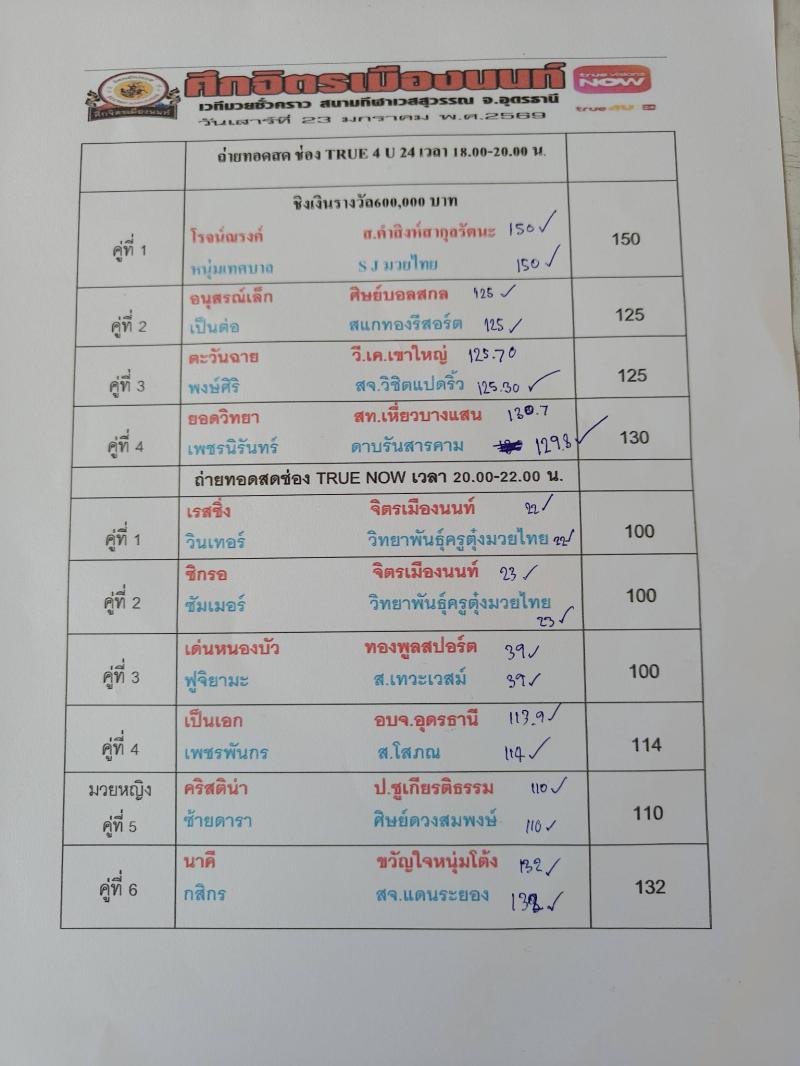 ศึกจิตรเมืองนนท์
ศึกจิตรเมืองนนท์
true visions
NOW
true 4U 24
เวทีมวยชั่วคราว สนามกีฬาเวสสุวรรณ จ.อุดรธานี
วันเสาร์ที่ 23 มกราคม พ.ศ.2569
ถ่ายทอดสด ช่อง TRUE 4 U 24 เวลา 18.00-20.00 น.
ชิงเงินรางวัล600,000 บาท
คู่ที่ 1 โรจน์ณรงค์ ส.คำสิงห์สากุลวัฒนะ 150 ✓ 150
หนุ่มเทศบาล S J มวยไทย 150 ✓
คู่ที่ 2 อนุสรณ์เล็ก ศิษย์บอลสกล 125 ✓ 125
เป็นต่อ สแกทองรีสอร์ต 125 ✓
คู่ที่ 3 ตะวันฉาย วี.เค.เขาใหญ่ 125.70 125
พงษ์ศิริ สจ.วิชิตแปดริ้ว 125.30 ✓
คู่ที่ 4 ยอดวิทยา สท.เหี่ยวบางแสน 130.7 130
เพชรนิรันทร์ ดาบรันสารคาม 129.8 ✓
ถ่ายทอดสดช่อง TRUE NOW เวลา 20.00-22.00 น.
คู่ที่ 1 เรสซิ่ง จิตรเมืองนนท์ 22 ✓ 100
วินเทอร์ วิทยาพันธุ์ครูตุ๋งมวยไทย 22 ✓
คู่ที่ 2 ซิกรอ จิตรเมืองนนท์ 23 ✓ 100
ซัมเมอร์ วิทยาพันธุ์ครูตุ๋งมวยไทย
23 ✓
คู่ที่ 3 เด่นหนองบัว ทองพูลสปอร์ต 39 ✓ 100
ฟูจิยามะ ส.เทวะเวสม์ 39 ✓
คู่ที่ 4 เป็นเอก อบจ.อุดรธานี 113.9 ✓ 114
เพชรพันกร ส.โสภณ 114 ✓
มวยหญิง คริสติน่า ป.ชูเกียรติธรรม 110 ✓ 110
คู่ที่ 5 ซ้ายดารา ศิษย์ดวงสมพงษ์ 110 ✓
คู่ที่ 6 นาคี ขวัญใจหนุ่มโต้ง 132 ✓ 132
กสิกร สจ.แดนระยอง 132 ✓